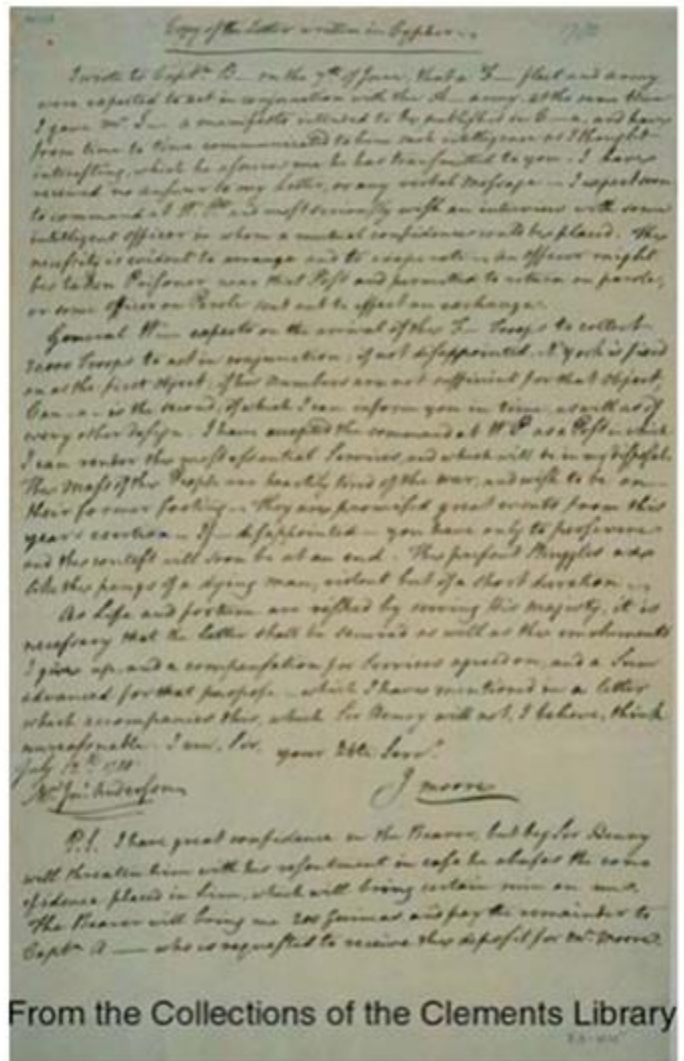 Copy of the Letter written in Cypher
I wrote to Captn B— on the 7th of June, that a F— fleet and army
were expected to act in conjunction with the A— army. at the same time
I gave Mr S— a manifesto intended to be published in C—a, and have
from time to time communicated to him such intelligence as I thought
interesting, which he assures me he has transmitted to you. I have
received no answer to my Letter, or any verbal Message. I expect soon
to command at W. Pt and most seriously wish an interview with some
intelligent officer in whom a mutual confidence could be placed. The
necessity is evident to arrange and to cooperate. An officer might
be taken Prisoner near that Post and permitted to return on parole,
or some officer on Parole sent out to effect an exchange.
General W— expects on the arrival of the F— Troops to collect
30000 Troops to act in conjunction; if not disappointed, N. York is fixed
on as the first object, if his numbers are not sufficient for that object,
Can—a— is the second; of which I can inform you in time, as well as of
every other design. I have accepted the command at W. P. as a Post in which
I can render the most essential Services, and which will be in my disposal.
The mass of the People are heartily tired of the war, and wish to be on
their former footing. They are promised great events from this
year's exertion. If disappointed you have only to persevere
and the contest will soon be at an end. The present Struggles are
like the pangs of a dying man, violent but of a short duration
As Life and fortune are risked by serving His Majesty, it is
necessary that the latter shall be secured as well as the emoluments
I give up, and a compensation for Services agreed on, and a Sum
advanced for that purpose which I have mentioned in a letter
which accompanies this, which Sir Henry will not, I believe, think
unreasonable. I am, Sir, your Hble Servt.
July 12th 1780
Mr Jn. Anderson J Moore
P.S. I have great confidence in the Bearer, but beg Sir Henry
will threaten him with his resentment in case he abuses the con-
fidence placed in him, which will bring certain ruin on me.
The Bearer will bring me 200 Guineas and pay the remainder to
Captn A— who is requested to receive the deposit for Mr Moore.
From the Collections of the Clements Library